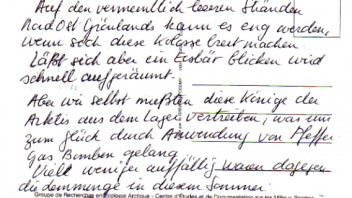 Auf den vermeintlich leeren Stränden
NordOst Grönlands kann es eng werden,
wenn sich diese Kolosse breit machen.
Läßt sich aber ein Eisbär blicken wird
schnell aufgeräumt.
Aber wir selbst mußten diese Könige der
Arktis aus dem Lager vertreiben, was uns
zum Glück durch Anwendung von Pfeffer
Gas Bomben gelang
Viel weniger auffällig waren dagegen
die Lemminge in diesem Sommer
Groupe de Recherches en Ecologie Arctique - Centre d'Études et de Documentation sur les Milieux